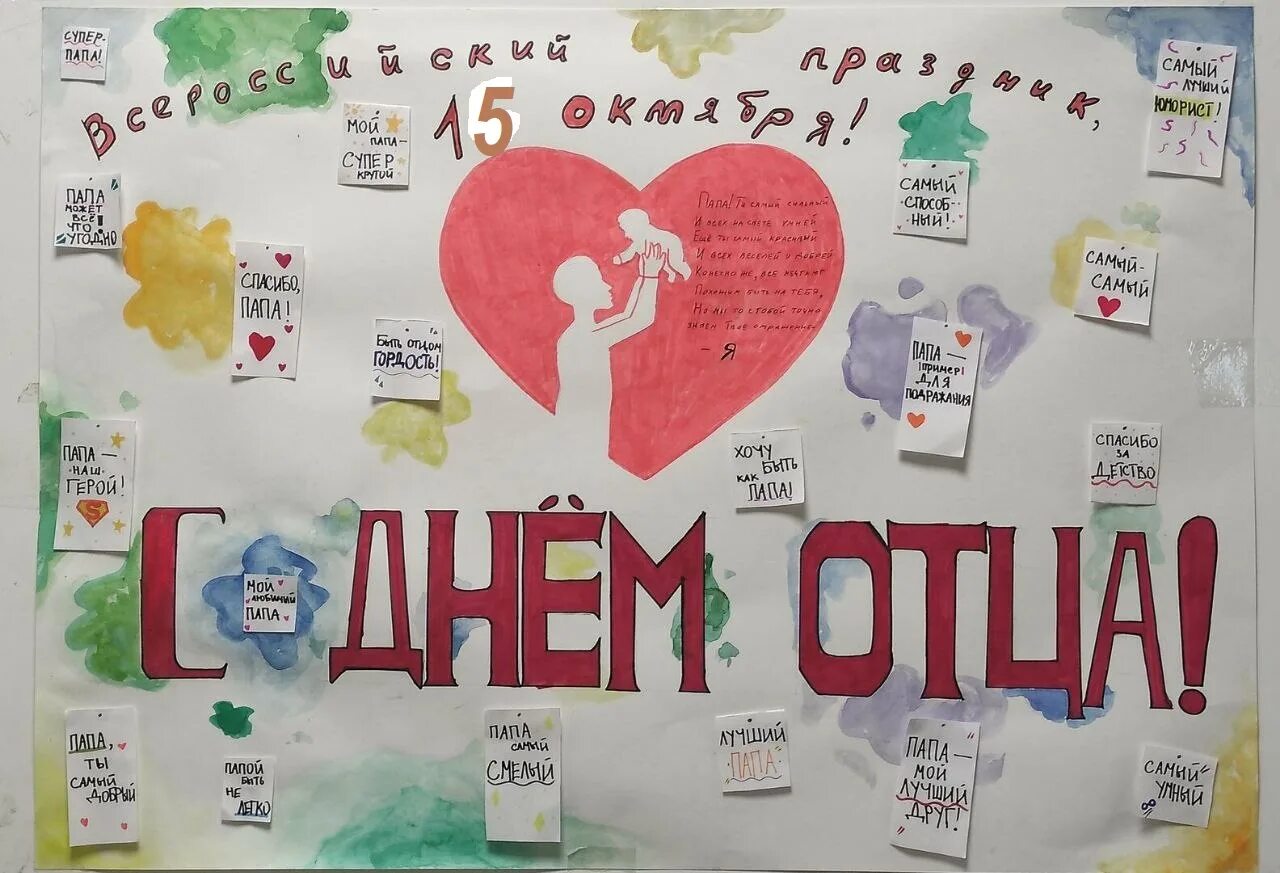 Всероссийский праздник,
15 октября!
СУПЕР-
ПАПА!
МОЙ
ПАПА-
СУПЕР
КРУТОЙ
САМЫЙ
ЛУЧШИЙ
ЮМОРИСТ!
ПАПА
МОЖЕТ
ВСЁ!
ЧТО
УГОДНО
САМЫЙ
СПОСОБ-
НЫЙ!
СПАСИБО,
ПАПА!
ПАПА! ТЫ САМЫЙ СИЛЬНЫЙ
И ВСЕХ НА СВЕТЕ УМНЕЙ
ЕЩЁ ТЫ САМЫЙ КРАСИВЫЙ
И ВСЕХ ВЕСЕЛЕЙ И ДОБРЕЙ
КОНЕЧНО ЖЕ, ВСЕ МЕЧТАЮТ
ПОХОЖИМ БЫТЬ НА ТЕБЯ,
НО МЫ ТО С ТОБОЙ ТОЧНО
ЗНАЕМ ТВОЁ ОТРАЖЕНИЕ
- Я
САМЫЙ-
САМЫЙ
БЫТЬ ОТЦОМ
ГОРДОСТЬ!
ПАПА —
ПРИМЕР
ДЛЯ
ПОДРАЖАНИЯ
ПАПА —
НАШ
ГЕРОЙ!
S
ХОЧУ
БЫТЬ
КАК
ПАПА!
СПАСИБО
ЗА
ДЕТСТВО
С ДНЁМ ОТЦА!
МОЙ
ЛЮБИМЫЙ
ПАПА
ПАПА,
ТЫ
САМЫЙ
ДОБРЫЙ
ПАПОЙ
БЫТЬ
НЕ
ЛЕГКО
ПАПА
САМЫЙ
СМЕЛЫЙ
ЛУЧШИЙ
ПАПА
ПАПА —
МОЙ
ЛУЧШИЙ
ДРУГ!
САМЫЙ
УМНЫЙ